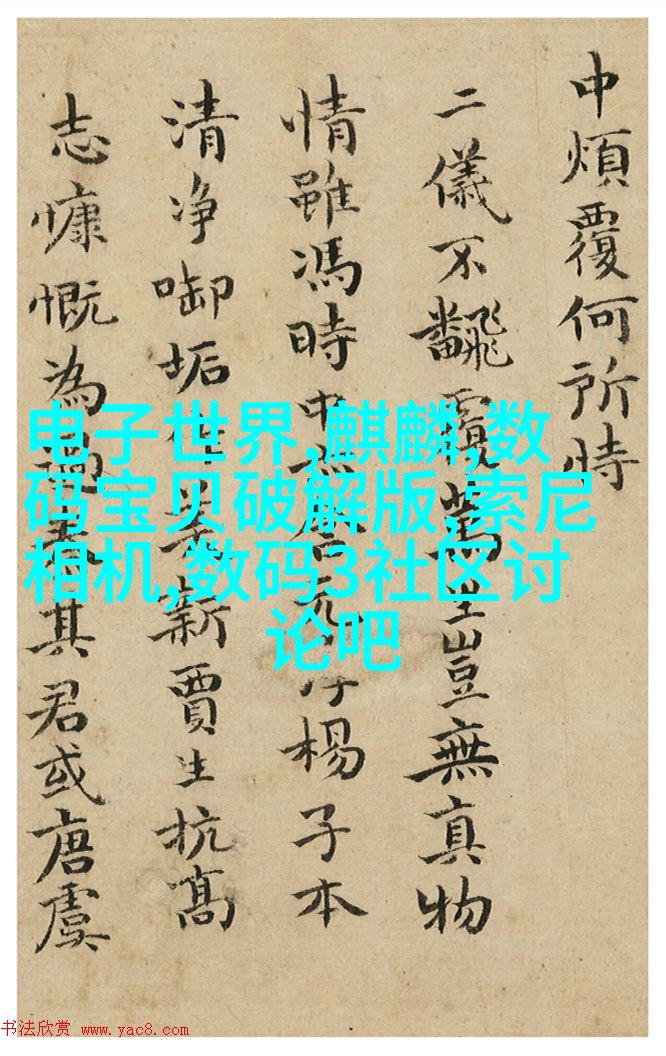 中煩覆何所恃
二儀不飜覆萬生豈無真物
情雖馮時中
楊子本
清净啣垢作
新賈生抗高
志慷慨為
其君或唐虞
电子世界,麒麟,数
码宝贝破解版,索尼
相机,数码3社区讨
论吧
书法欣赏 www.yac8.com